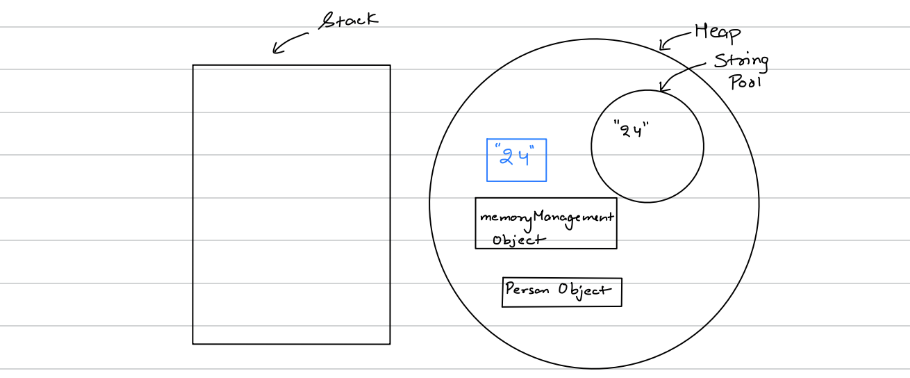 Stack
Heap
String
Pool
"24"
"24"
memoryManagement
Object
Person Object